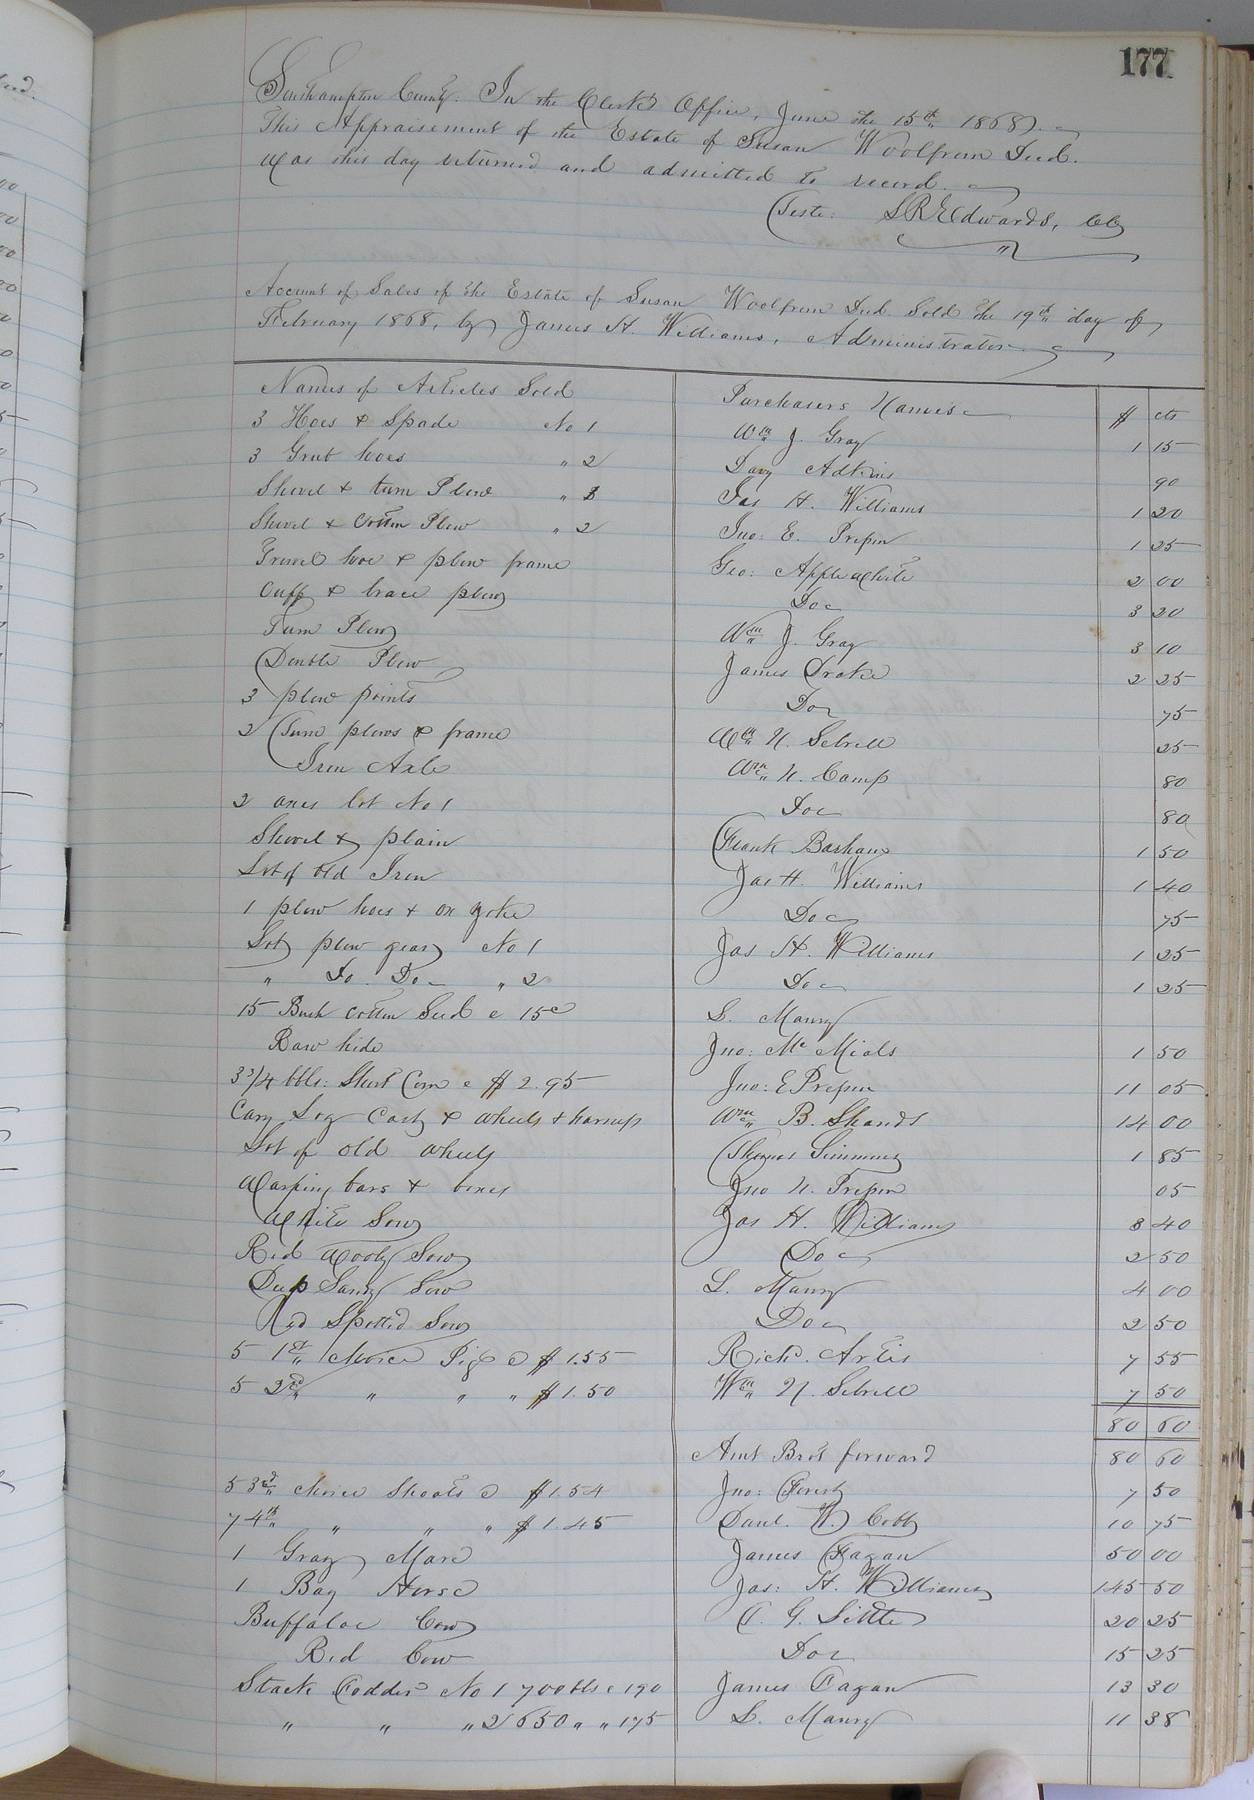 177
Southampton County. In the Clerk's Office, June the 15th 1868.
This Appraisement of the Estate of Susan Woolfrem Decd.
Was this day returned and admitted to record.
Teste: L R Edwards, CC
Account of Sales of the Estate of Susan Woolfrem Decd. Sold the 19th day of
February 1868, by James H. Williams, Administrator.
Names of Articles Sold Purchasers Names $ cts
3 Hoes & Spade No 1 Wm J. Gray 1 15
3 Grub hoes " 2 Davy Adkins 90
Shovel & turn Plow " Jas H. Williams 1 20
Shovel & Cotton Plow " 2 Jno: E. 1 25
hoe & plow frame Geo: Applewhite 2 00
Cuff & brace plow Do 3 20
Turn Plow Wm J. Gray 3 10
Double Plow James Drake 2 25
3 plow points Do 75
2 Turn plows & frame Wm N. Sebrell 25
Iron Axle Wm N. Camp 80
2 axes lot No 1 Do 80
Shovel & plain Frank Basham 1 50
Lot of old Iron Jas H. Williams 1 40
1 plow hoes & ox yoke Do 75
Lot plow gear No 1 Jas H. Williams 1 25
" Do. Do " 2 Do 1 25
15 Bush Cotton Seed @ 15c L. Maury
Raw hide Jno: Mc Mials 1 50
3 3/4 bbls: Short Corn @ $2.95 Jno: E 11 05
Cary Log Cart & wheels & harness Wm B. Shands 14 00
Lot of old wheels Thomas Simmons 1 85
Warping bars & boxes Jno N. 05
White Sow Jas H. Williams 3 40
Red Sow Do 2 50
Sow L. Maury 4 00
Red Spotted Sow Do 2 50
5 1st Choice Pigs @ $1.55 Richd. Artis 7 55
5 2nd " " " $1.50 Wm N. Sebrell 7 50
80 60
Amt Brot forward 80 60
5 3rd Choice Shoats @ $1.54 Jno: 7 50
7 4th " " " $1.45 Danl. W. Cobb 10 75
1 Gray Mare James Fagan 50 00
1 Bay Horse Jas: H. Williams 145 50
Buffaloe Cow G. Little 20 25
Red Cow Do 15 25
Stack Fodder No 1 700 lbs @ 190 James Fagan 13 30
" " " 2 650 " " 175 L. Maury 11 38